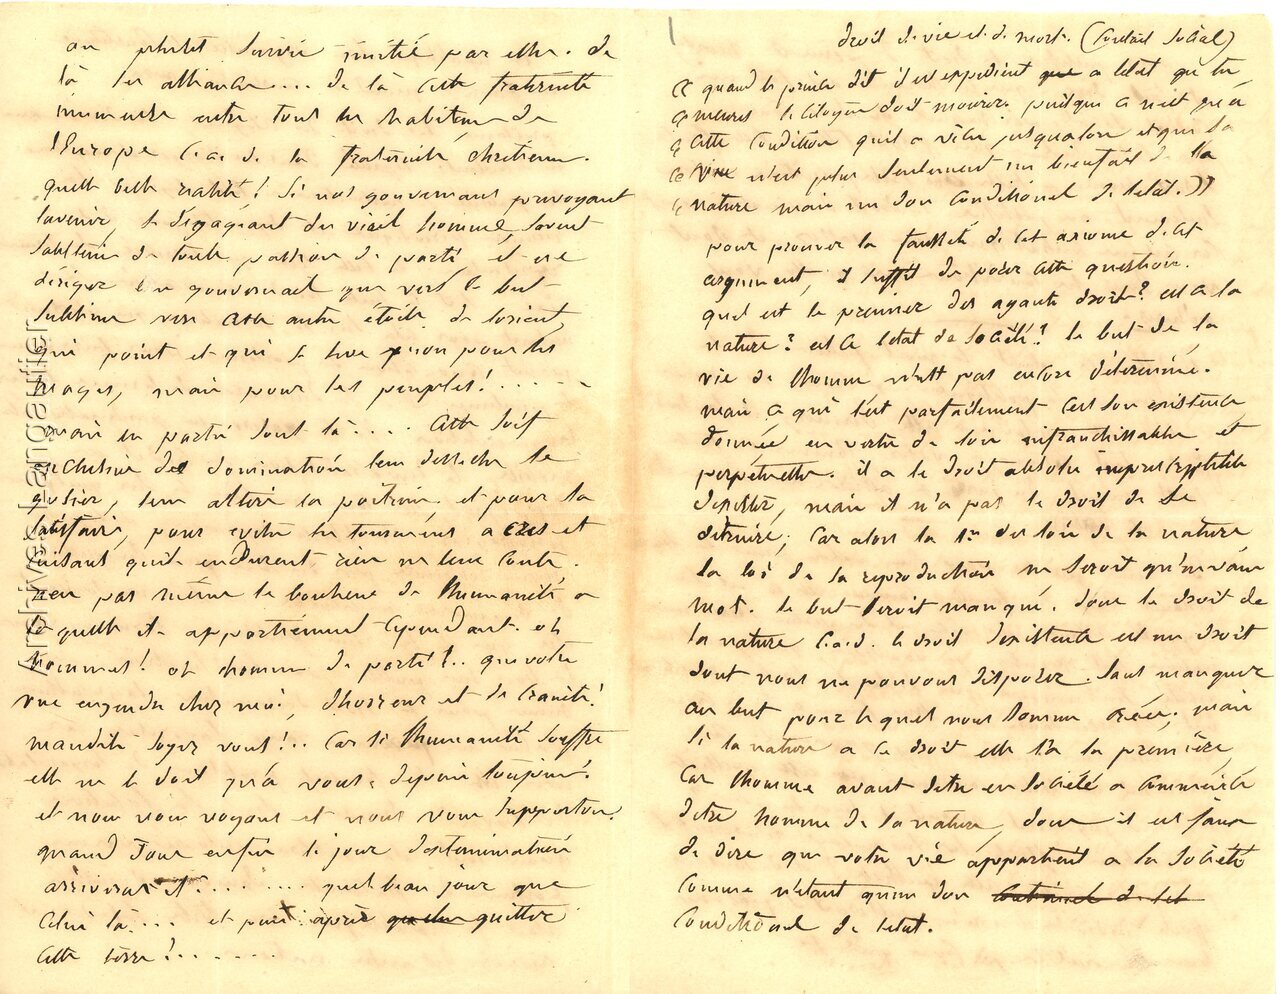 ou plutot suivie imitée par elle. de
là les alliances.... de là cette fraternité
immense entre tous les habitans de
l'Europe c.a.d. la fraternité chretienne.
quelle belle réalité! Si nos gouvernans prevoyant
lavenir, se dégageant du vieil homme, savent
sabstenir de toute passion de parti et ne
diriger le gouvernail que vers le but
sublime vers cette autre étoile de lorient,
qui point et qui se leve non pour les
mages, mais pour les peuples!.....
mais les partis sont là.... cette soif
exclusive de domination leur desseche le
gosier, leur altere la poitrine. et pour la
satisfaire, pour eviter les tourmens et
cuisans quils endurent, rien ne leur coute.
rien pas même le bonheur de lhumanité a
laquelle ils appartiennent cependant. oh
hommes! oh hommes de parti!.. que votre
vue engendre chez moi, dhorreur et de
maudits soyez vous!.. car si lhumanité souffre
elle ne le doit qu'a vous. depuis toujours.
et nous vous voyons et nous vous supportons.
quand donc enfin le jour dextermination
arrivera t'il........ quel beau jour que
celui là.... et puis après quitter
cette terre!......
droit de vie et de mort. (Contrat Social)
« quand le prince dit il est expedient a letat que tu
« meures le citoyen doit mourir. puisque ce n'est qu'a
« cette condition qu'il a vécu jusqualors et que sa
« vie n'est plus seulement un bienfait de la
« nature mais un don conditionel de letat. »
pour prouver la fausseté de cet axiome de cet
argument, il suffit de poser cette question.
quel est le premier des ayants droit? est ce la
nature? est ce letat de société? le but de la
vie de lhomme n'est pas encore déterminé.
mais ce qui lest parfaitement cest son existence
donnée en vertu de lois infranchissables et
perpetuelles. il a le droit absolu imprescriptible
dexister, mais il n'a pas le droit de se
détruire, car alors la 1re des lois de la nature
la loi de la reproduction ne seroit qu'un vain
mot. le but seroit manqué. donc le droit de
la nature c.a.d. le droit dexistence est un droit
dont nous ne pouvons disposer. sans manquer
au but pour lequel nous sommes créés; mais
si la nature a ce droit elle l'a la première,
car lhomme avant detre en société a commencé
detre homme de la nature, donc il est faux
de dire que votre vie appartient a la société
comme n'etant quun don
conditionel de letat.
Archives Langautier